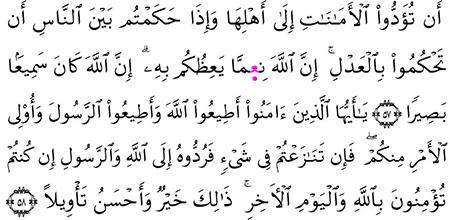 أَن تُؤَدُّواْ الْأَمَٰنَٰتِ إِلَىٰ أَهْلِهَا وَإِذَا حَكَمْتُم بَيْنَ النَّاسِ أَن
تَحْكُمُواْ بِالْعَدْلِۚ إِنَّ اللَّهَ نِعِمَّا يَعِظُكُم بِهِۦٓۗ إِنَّ اللَّهَ كَانَ سَمِيعَۢا
بَصِيرًا ٥٧ يَٰٓأَيُّهَا الَّذِينَ ءَامَنُواْ أَطِيعُواْ اللَّهَ وَأَطِيعُواْ الرَّسُولَ وَأُوْلِي
الْأَمْرِ مِنكُمْۖ فَإِن تَنَٰزَعْتُمْ فِي شَيْءٖ فَرُدُّوهُ إِلَى اللَّهِ وَالرَّسُولِ إِن كُنتُمْ
تُؤْمِنُونَ بِاللَّهِ وَالْيَوْمِ الْأٓخِرِۚ ذَٰلِكَ خَيْرٞ وَأَحْسَنُ تَأْوِيلاً ٥٨